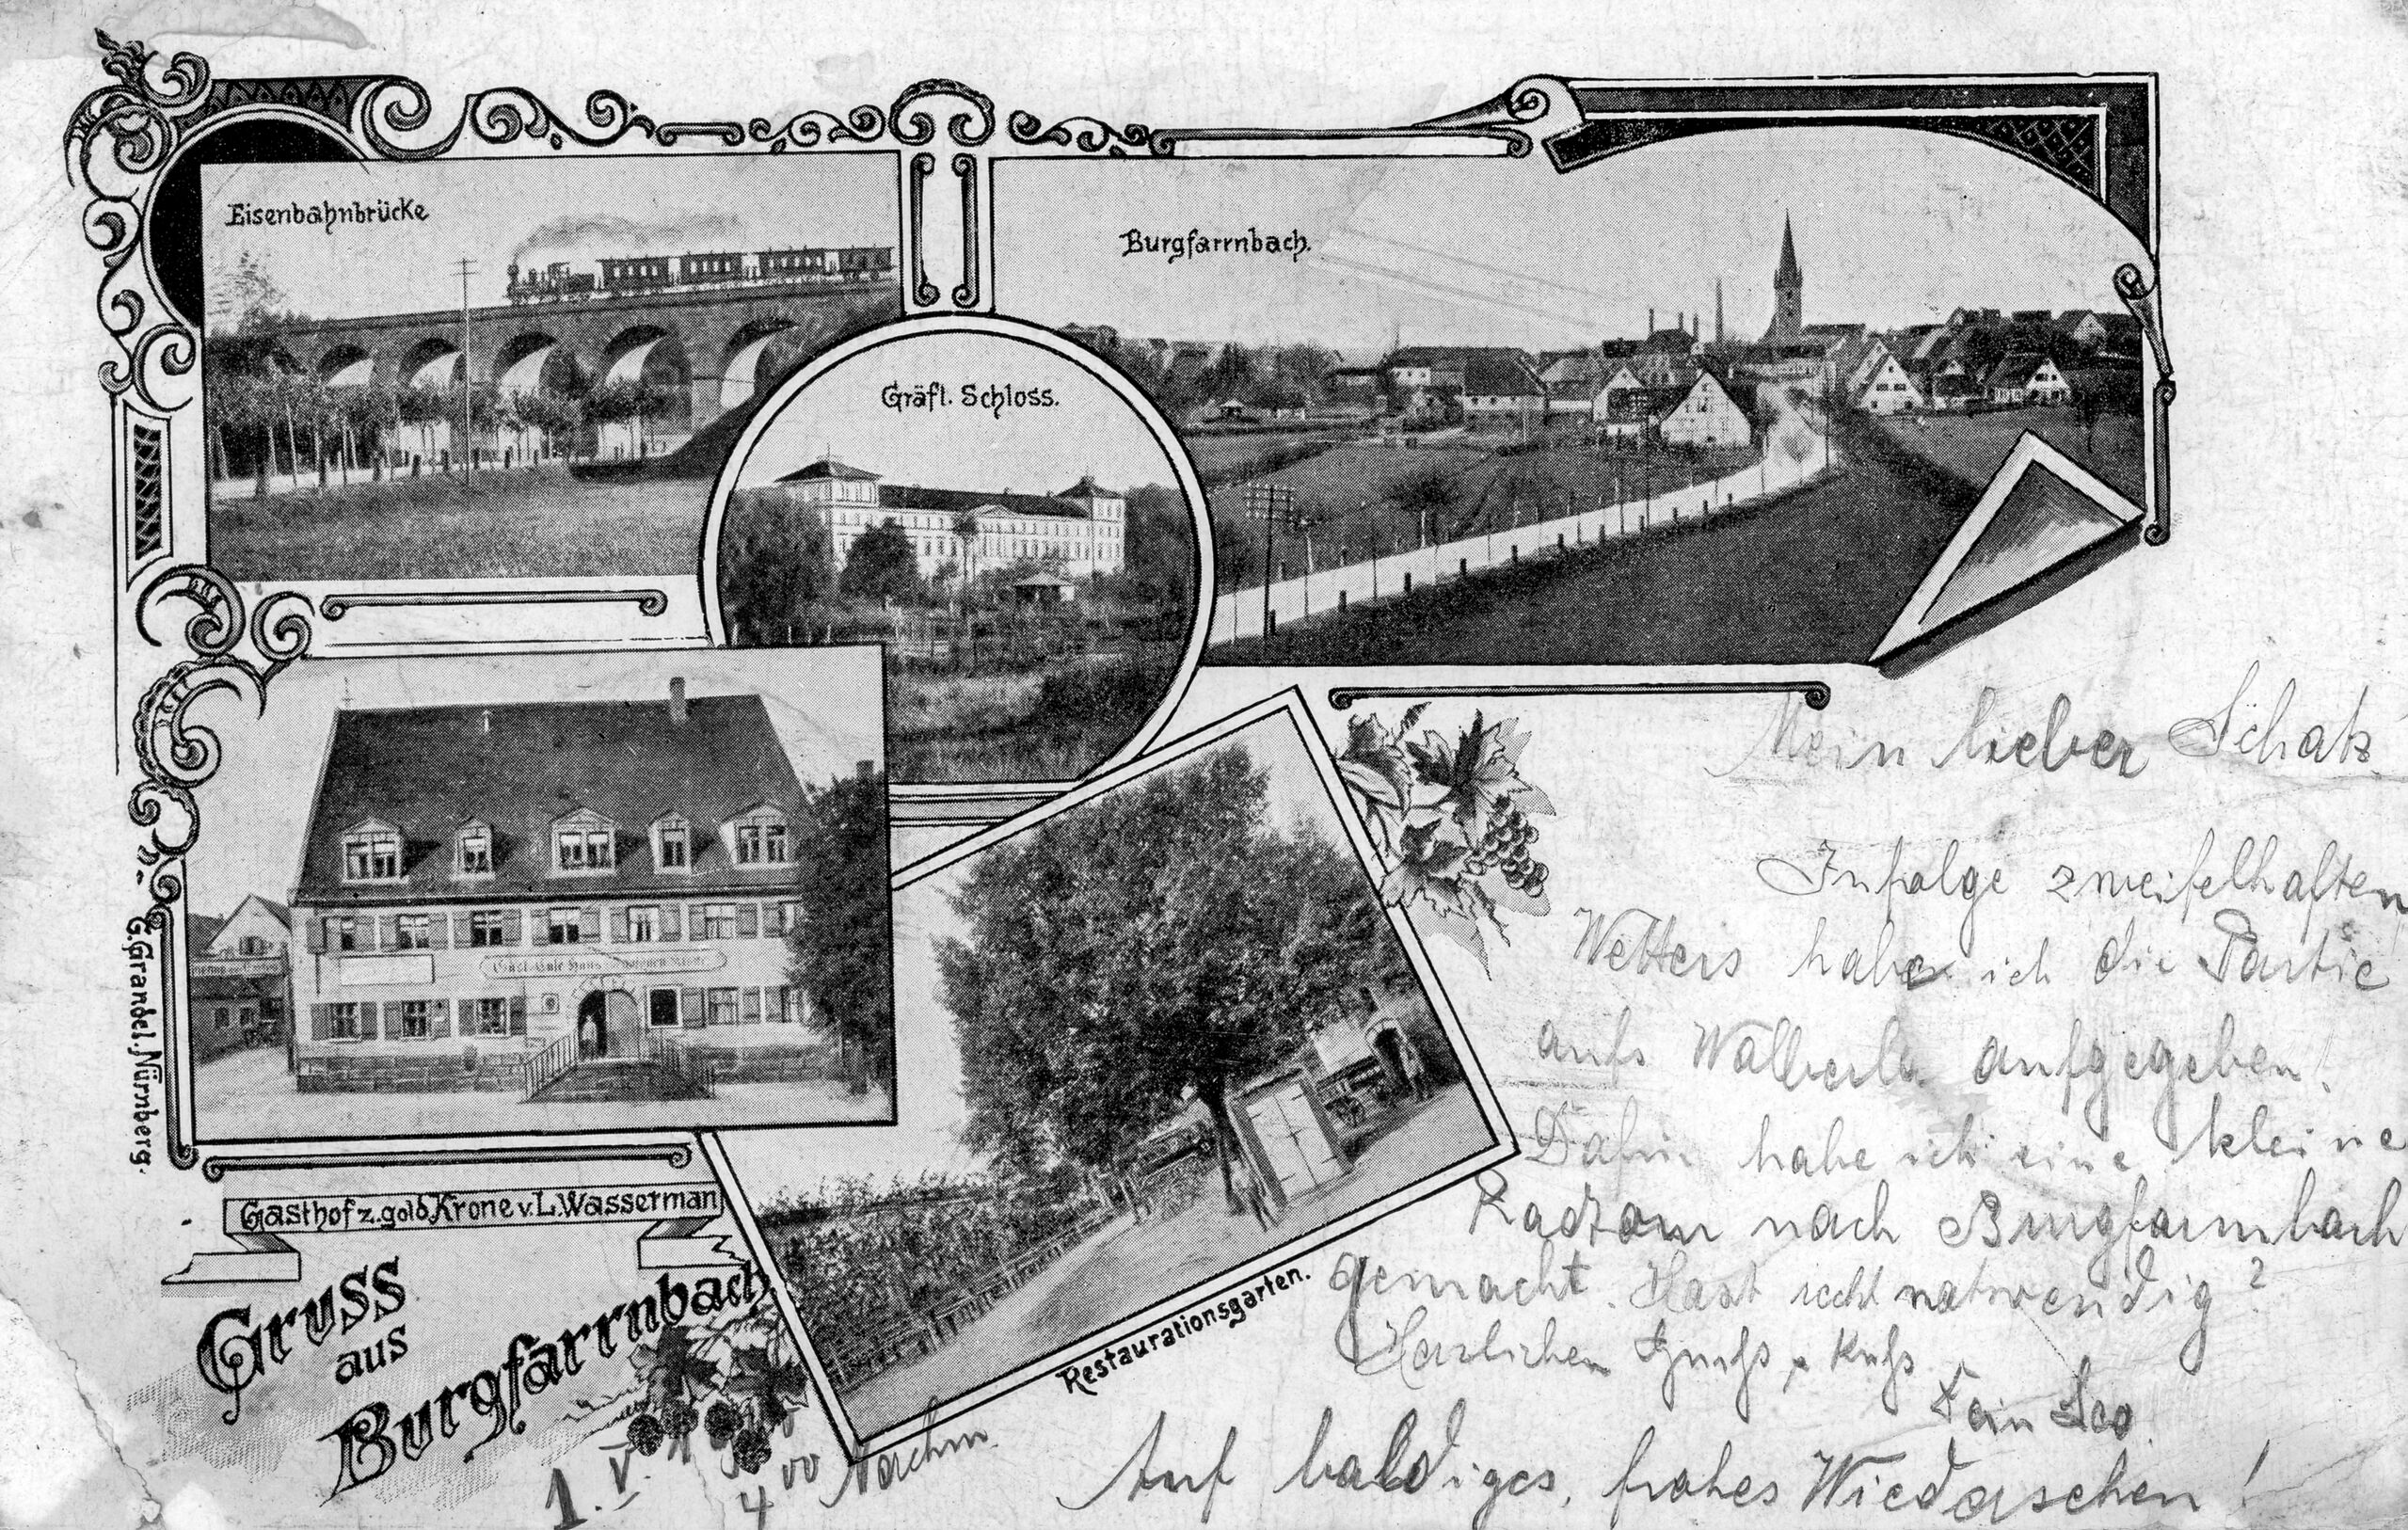 Eisenbahnbrücke
Burgfarrnbach.
Gräfl. Schloss.
G. Grandel. Nürnberg.
Gasthof z. gold. Krone v. L. Wasserman
Gruss
aus
Burgfarrnbach
Restaurationsgarten.
Mein lieber Schatz
Infolge zweifelhaften
Wetters habe ich die Partie
aufs Walberla aufgegeben!
Dafür habe ich eine kleine
Radtour nach Burgfarrnbach
gemacht. Hast recht notwendig?
Herzlichen Gruß & Kuß
Dein Leo
Auf baldiges, frohes Wiedersehen!
1. V.
4 00 Nachm.